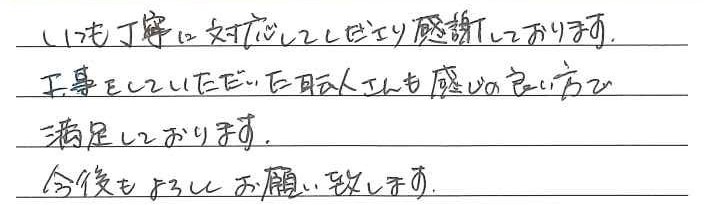 いつも丁寧に対応してくださり感謝しております.
工事をしていただいた職人さんも感じの良い方で
満足しております.
今後もよろしくお願い致します.